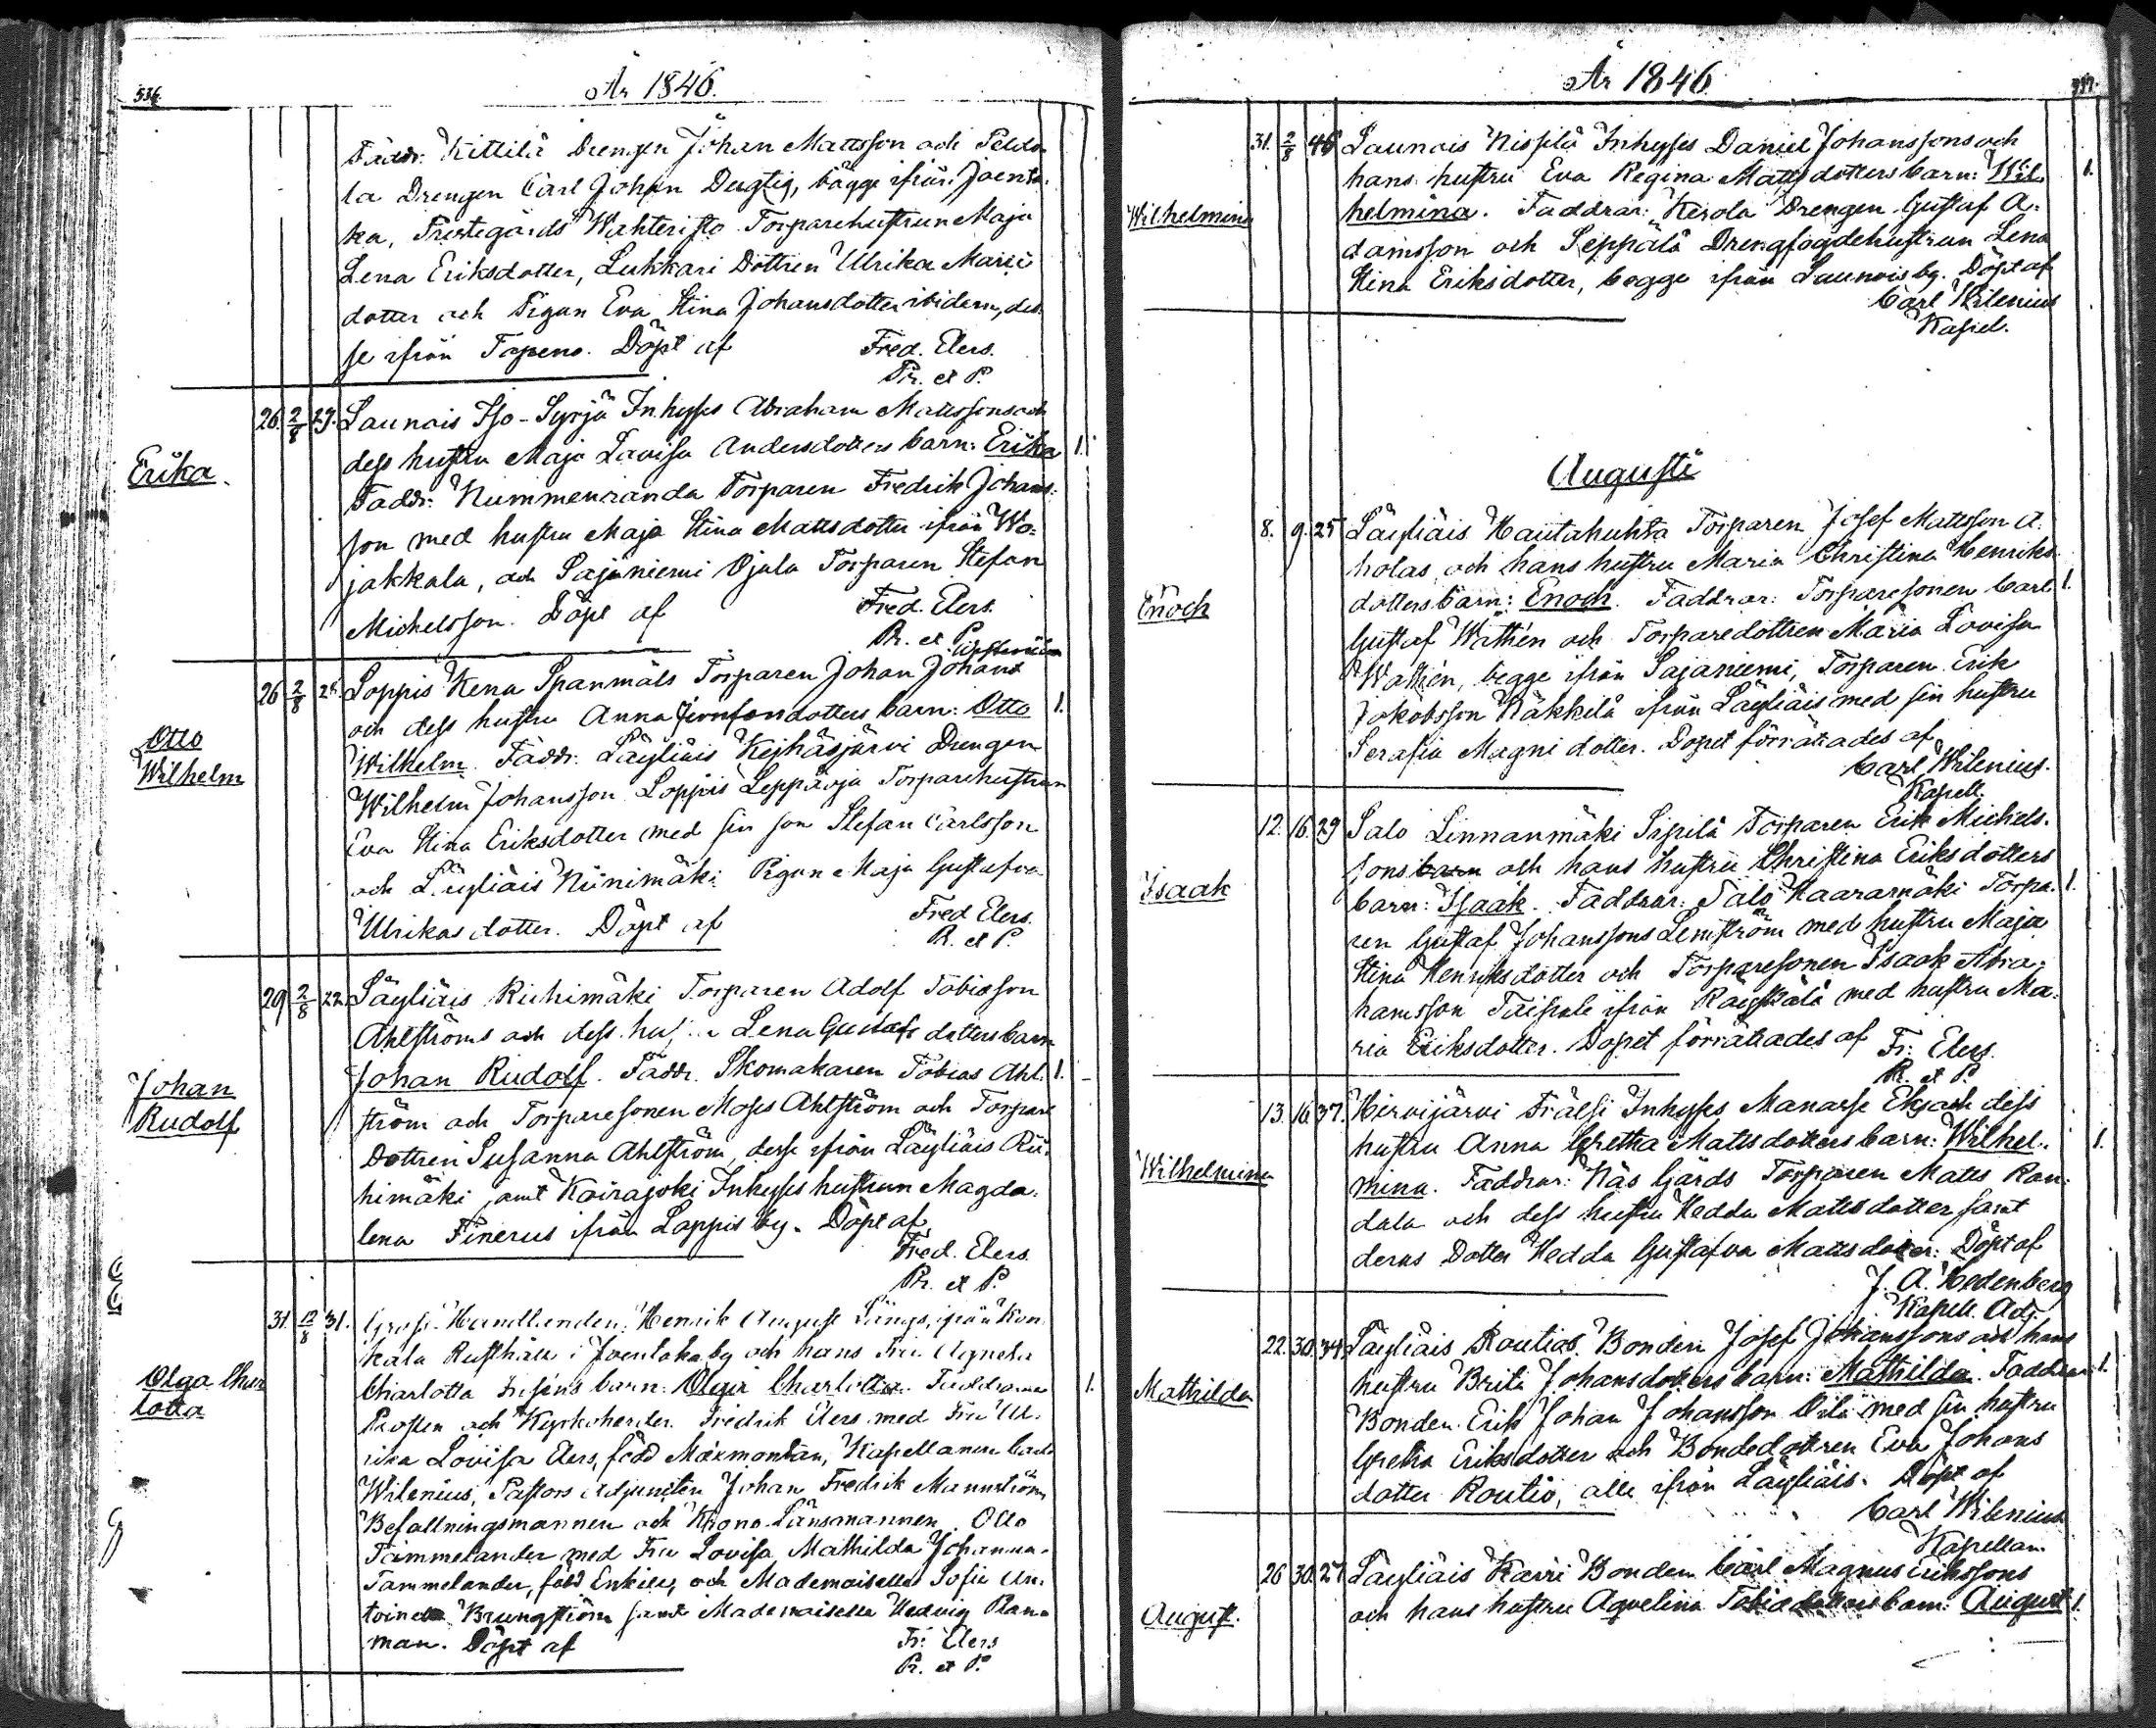 536.
År 1846.
Faddr: Kittilä Drengen Johan Mattsson och Peldo
la Drengen Carl Johan Dugtig, bägge ifrån Joenta
ka, Prestegårds Wahteristo Torparehustrun Maja
Lena Eriksdotter, Lukkari Dottren Ulrika Marie
dotter och Pigan Eva Stina Johansdotter ibidem, des
se ifrån Topeno. Döpt af
Fred. Elers.
Pr. et P.
Erika
26. 2/8 27. Launois Iso-Syrjä Inhyses Abraham Mattssons och
dess hustru Maja Lovisa Andersdotters barn: Erika 1.
Faddr: Nummenranda Torparen Fredrik Johans-
son med hustru Maja Stina Mattsdotter ifrån Wo-
jakkala, och Sajaniemi Ojala Torparen Stefan
Michelsson. Döpt af
Fred. Elers.
Pr. et P.
Otto
Wilhelm
26 2/8 25. Loppis Kena Spanmäls Torparen Johan Johans
och dess hustru Anna dotters barn: Otto 1.
Wilhelm. Faddr. Läyliäis Keihäsjärvi Drengen
Wilhelm Johansson Loppis Leppäoja Torparehustrun
Eva Stina Eriksdotter med sin son Stefan Carlsson
och Läyliäis Niinimäki Pigan Maja Gustafva
Ulrikas dotter. Döpt af
Fred Elers.
P. et P.
Johan
Rudolf
29 2/8 22. Läyliäis Riihimäki Torparen Adolf Tobiasson
Ahlströms och dess hu Lena Gustafs dotters barn
Johan Rudolf. Faddr. Skomakaren Tobias Ahl- 1.
ström och Torparesonen Moses Ahlström och Torpare
Dottren Susanna Ahlström, desse ifrån Läyliäis Rii-
himäki samt Koirajoki Inhyses hustrun Magda-
lena Finerus ifrån Loppis by. Döpt af
Fred. Elers
Pr. et P.
Olga Char
lotta
31. 12/8 31. Gross-Handlanden Henrik August Längs, ifrån Kon
kala Rusthåll i Joentaka by och hans Fru Agneta
Charlotta barn: Olga Charlotta. Faddrarne 1.
Prosten och Kyrkoherden Fredrik Elers med Fru Ul-
rika Lovisa Elers, född Maxmontan, Kapellanen Carl
Wilenius, Pastors Adjuncten Johan Fredrik Mannström
Befallningsmannen och Krono-Länsmannen Otto
Tammelander med Fru Lovisa Mathilda Johanna
Tammelander, född och Mademoisellen Sofie An-
toinetta Brungström samt Mademoisella Hedvig Plan-
man. Döpt af
Fr: Elers
Pr. et P.
År 1846
537.
Wilhelmina
31. 2/8 46 Launois Nissilä Inhyses Daniel Johanssons och
hans hustru Eva Regina Mattsdotters barn: Wil- 1.
helmina. Faddrar: Kerola Drengen Gustaf A-
damsson och Seppälä Drengfogdehustrun Lena
Stina Eriksdotter, begge ifrån Launois by. Döpt af
Carl Wilenius
Kapel.
Augusti
Enoch
8. 9. 25 Läyliäis Hautahuhta Torparen Josef Mattsson A-
holas och hans hustru Maria Christina Henriks-
dotters barn: Enoch. Faddrar: Torparesonen Carl 1.
Gustaf Wathén och Torparedottren Maria Lovisa
Wathén, begge ifrån Sajaniemi, Torparen Erik
Jakobsson Käkkilä ifrån Läyliäis med sin hustru
Serafia Magni dotter. Dopet förrättades af
Carl Wilenius.
Kapell.
Isaak
12. 16. 29 Salo Linnanmäki Sipilä Torparen Erik Michels-
sons barn och hans hustru Christina Eriksdotters
barn: Isaak. Faddrar: Salo Haaramäki Torpa- 1.
ren Gustaf Johanssons Lemström med hustru Maja
Stina Henriksdotter och Torparesonen Isaak Abra-
hamsson Taipale ifrån Räyskälä med hustru Ma-
ria Eriksdotter. Dopet förrättades af
Fr: Elers.
Pr. et P.
Wilhelmina
13. 16. 37. Hirvijärvi Frälsi Inhyses Manasse Ek och dess
hustru Anna Gretha Mattsdotters barn: Wilhel- 1.
mina. Faddrar: Näs Gårds Torparen Matts Ran-
dala och dess hustru Hedda Mattsdotter samt
deras Dotter Hedda Gustafva Mattsdotter: Döpt af
J. A. Hedenberg
Kapell. Adj.
Mathilda
22. 30. 34. Läyliäis Routios Bonden Josef Johanssons och hans
hustru Brita Johansdotters barn: Mathilda. Faddrar 1.
Bonden Erik Johan Johansson Oilä med sin hustru
Gretha Eriksdotter och Bondedottren Eva Johans
dotter Routio, alla ifrån Läyliäis. Döpt af
Carl Wilenius
Kapellan.
August.
26 30. 27. Läyliäis Karri Bonden Carl Magnus Erikssons
och hans hustru Aqvelina Tobiadotters barn: August 1.